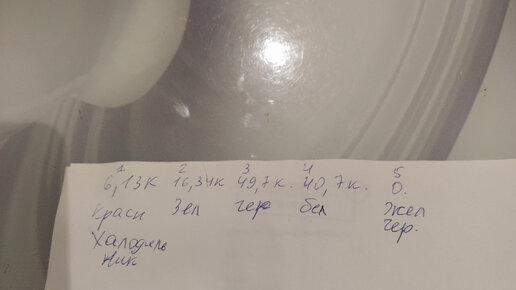 1 2 3 4 5
6,13к 16,34к 49,7к. 40,7к. 0.
Красн Зел чер бел Жел
чер.
Халодиль
ник